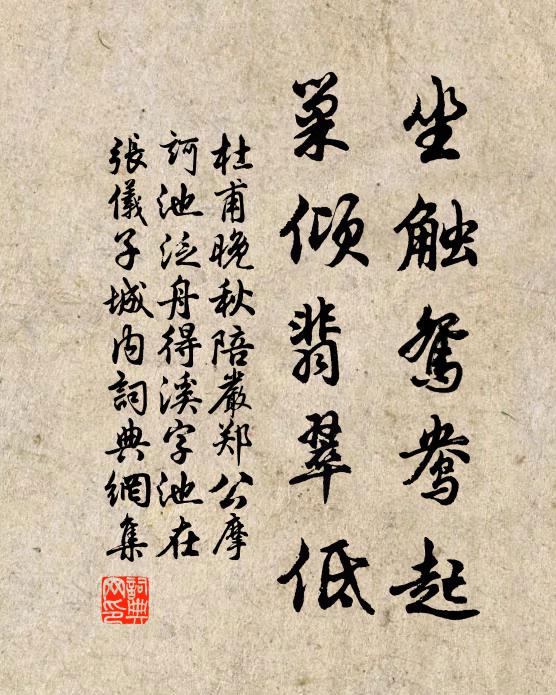 坐触鸳鸯起
巢倾翡翠低
杜甫晚秋陪嚴郑公摩
訶池泛舟得溪字池在
張儀子城内詞典網集
詞典網印